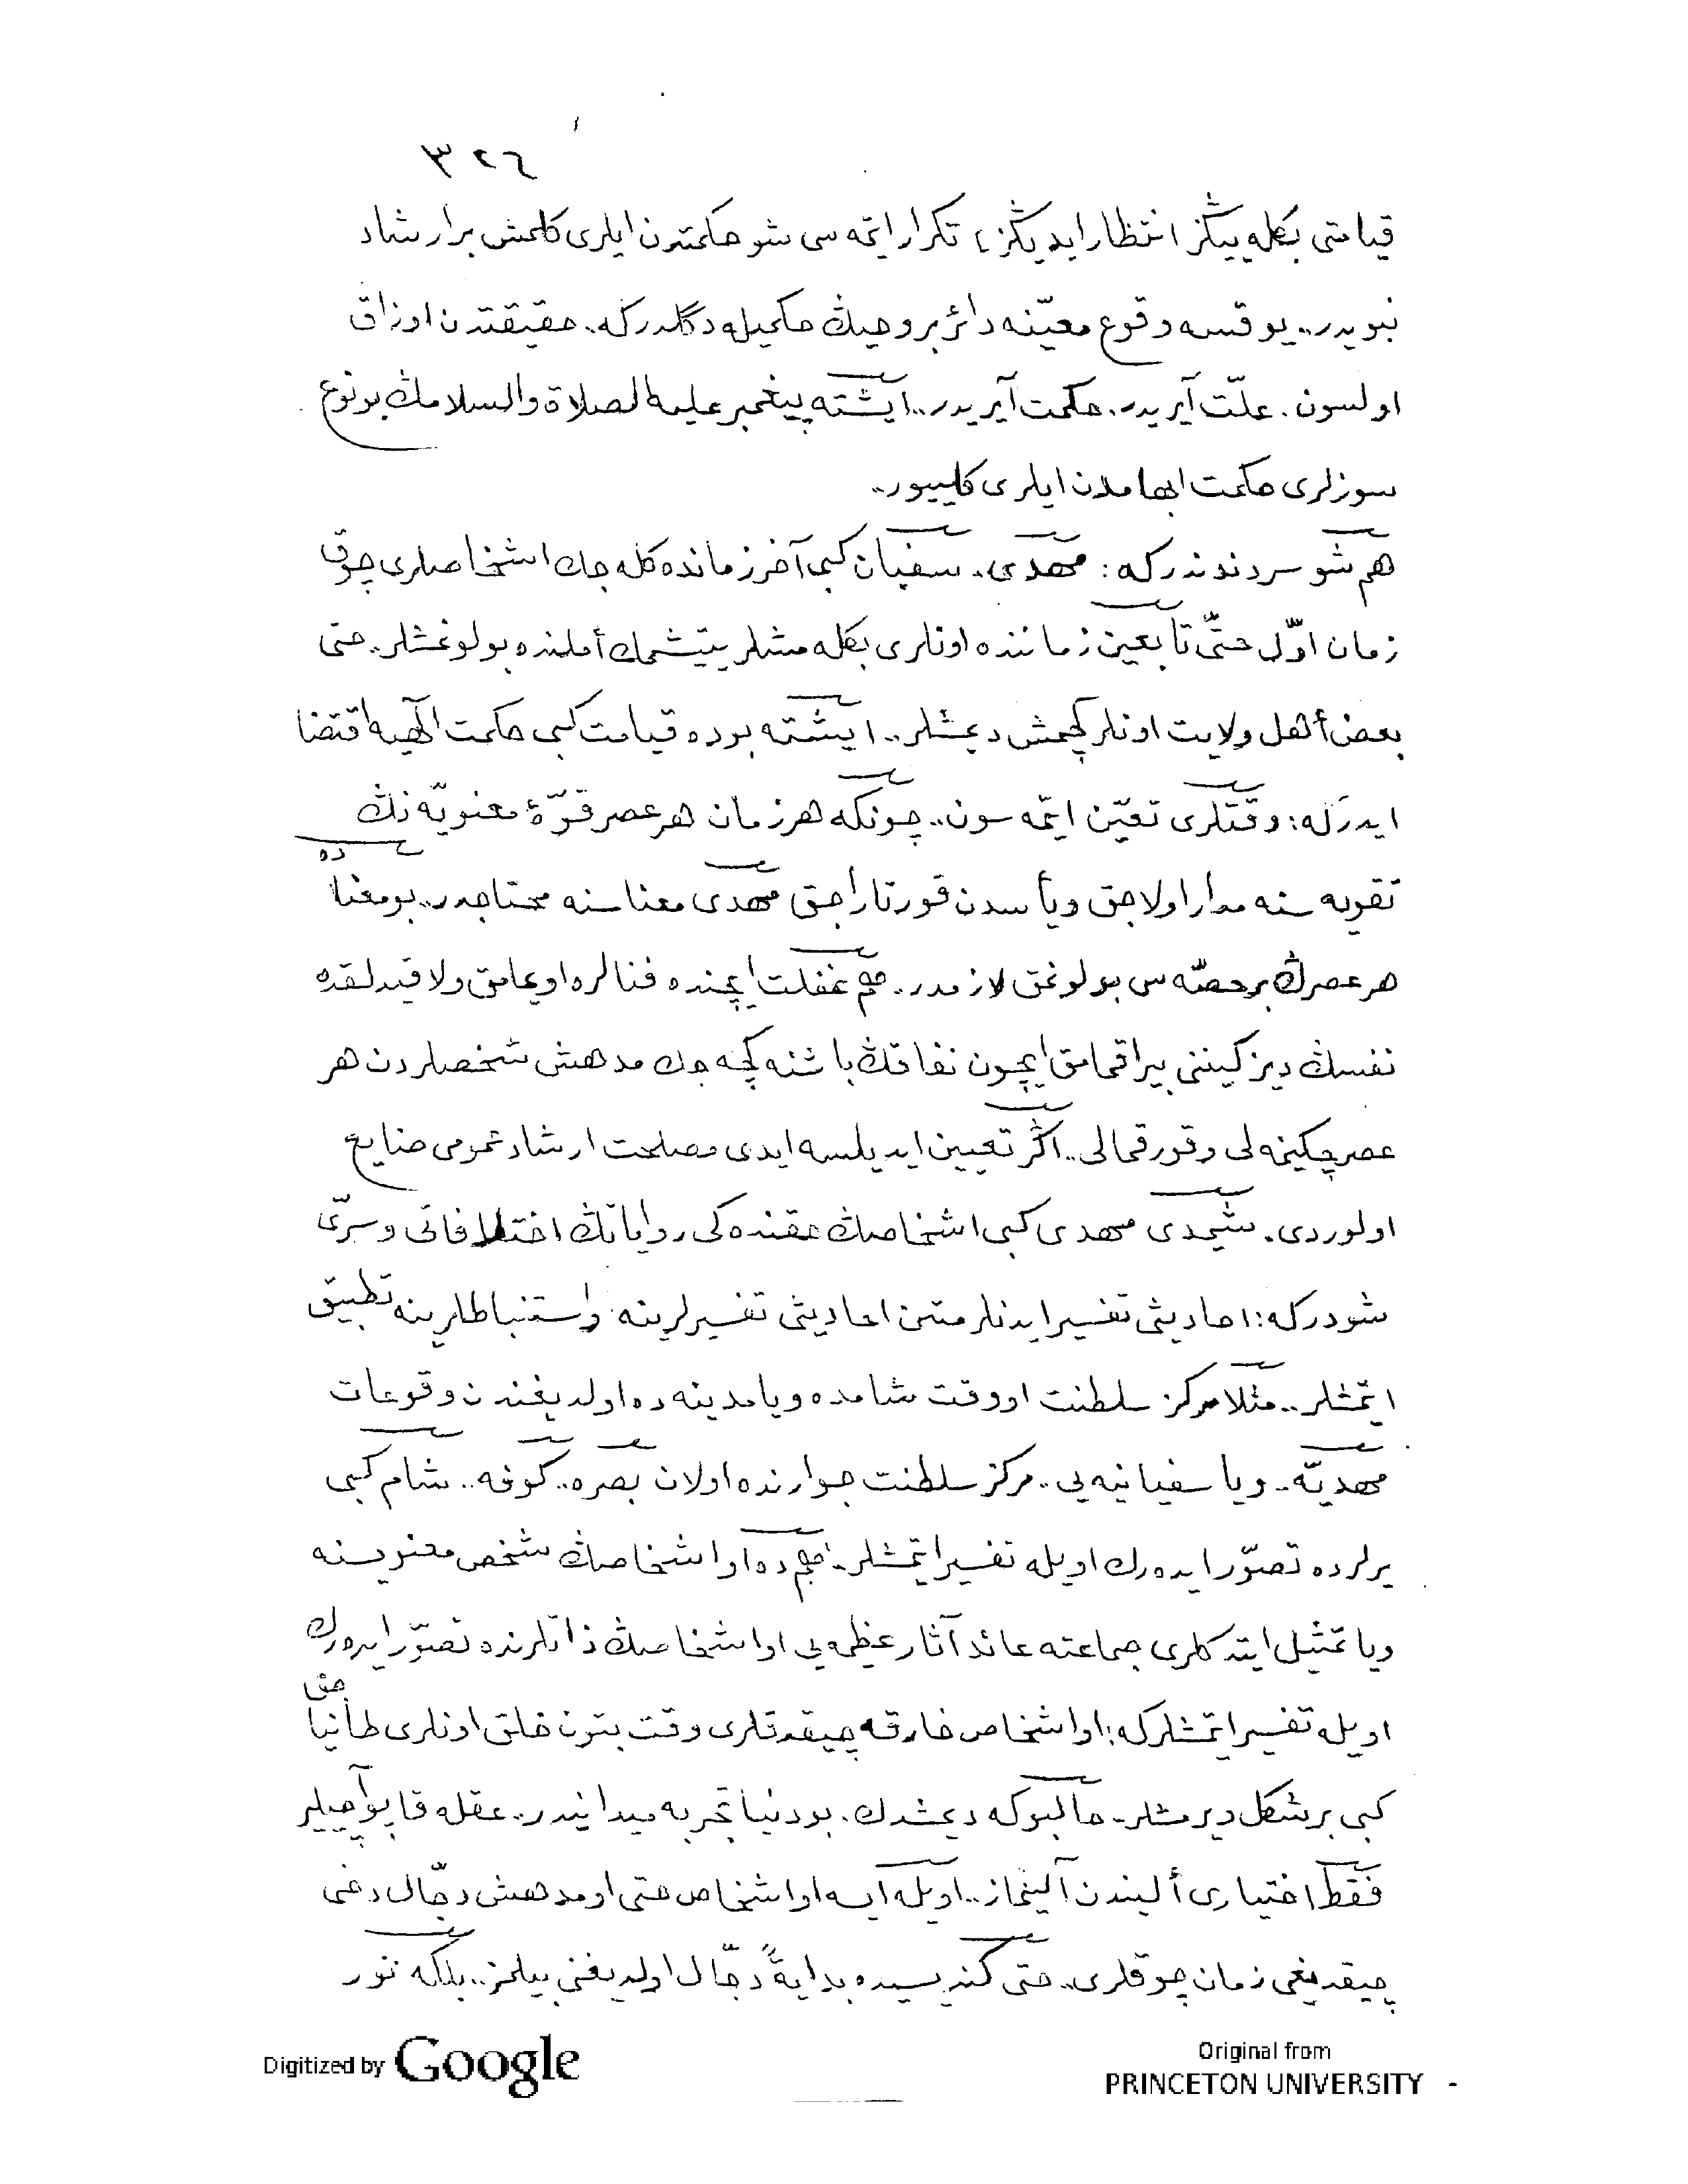 ٣٢٦
قيامتى بكله ييڭز انتظار ايديڭز، تكرار ايتمه سى شو حكمتدن ايلرى كلمش بر ارشاد
نبويدر.. يوقسه وقوع معيّنه دائر بر وحيڭ حكميله دگلدركه. حقيقتدن اوزاق
اولسون. علّت آيريدر. حكمت آيريدر.. ايشته پيغمبر عليه الصلاة والسلامڭ بو نوع
سوزلرى حكمت ابهامدن ايلرى كلييور..
هم شو سردندندركه: مهدى. سفيان كبى آخر زمانده كله جك اشخاصلرى چوق
زمان اوّل حتّى تابعين زماننده اونلرى بكله مشلر يتيشمك أملنده بولونمشلر.. حتى
بعض أهل ولايت اونلر كچمش ديمشلر.. ايشته بوده قيامت كبى حكمت الٓهيه اقتضا
ايدركه: وقتلرى تعيّن ايتمه سون.. چونكه هر زمان هر عصر قوّۀ معنويّه نڭ
تقويه سنه مدار اولاجق ويأسدن قورتاراجق مهدى معناسنه محتاجدر.. بو معناده
هر عصرڭ بر حصّه سى بولونمق لازمدر. هم غفلت ايچنده فنالره اويمامق ولا قيدلقده
نفسڭ ديزكيننى بيراقمامق ايچون نفاقڭ باشنه كچه جك مدهش شخصلردن هر
عصر چكينمه لى وقورقمالى.. اگر تعيين ايديلسه ايدى مصلحت ارشاد عمومى ضايع
اولوردى. شيمدى مهدى كبى اشخاصڭ حقنده كى رواياتڭ اختلافاتى وسرّى
شودركه: احاديثى تفسير ايدنلر متن احاديثى تفسيرلرينه واستنباطلرينه تطبيق
ايتمشلر.. مثلا مركز سلطنت او وقت شامده ويا مدينه ده اولديغندن وقوعات
مهديّه.. ويا سفيانيه يى.. مركز سلطنت جوارنده اولان بصره.. كوفه.. شام كبى
يرلرده تصوّر ايده رك اويله تفسير ايتمشلر. هم ده او اشخاصڭ شخص معنويسنه
ويا تمثيل ايتدكلرى جماعته عائد آثار عظيمه يى او اشخاصڭ ذاتلرنده تصوّر ايده رك
اويله تفسير ايتمشلركه: او اشخاص خارقه چيقدقلرى وقت بتون خلق اونلرى طانياجق
كبى بر شكل ديرمشلر. حالبوكه ديمشدك. بو دنيا تجربه ميدانيدر.. عقله قاپو آچيلير
فقط اختيارى ألندن آلينماز.. اويله ايسه او اشخاص حتى او مدهش دجّال دخى
چيقديغى زمان چوقلرى.. حتى كنديسيده بدايةً دجّال اولديغنى بيلمز.. بلكه نور
Digitized by Google
Original from
PRINCETON UNIVERSITY